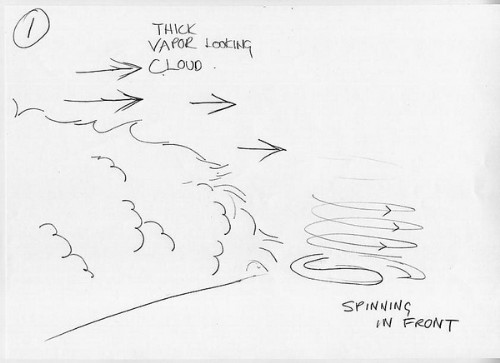 1
THICK
VAPOR LOOKING
CLOUD.
SPINNING
IN FRONT